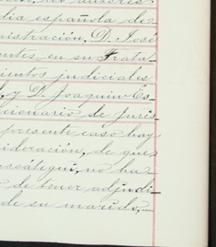 dia española de
nistración, D. José
entes en su Trata-
juntos judiciales
y D. Joaquin Es-
cionario de juris-
presente caso hay
ideración, de que
no ha
de tener adjudi-
de su marido,